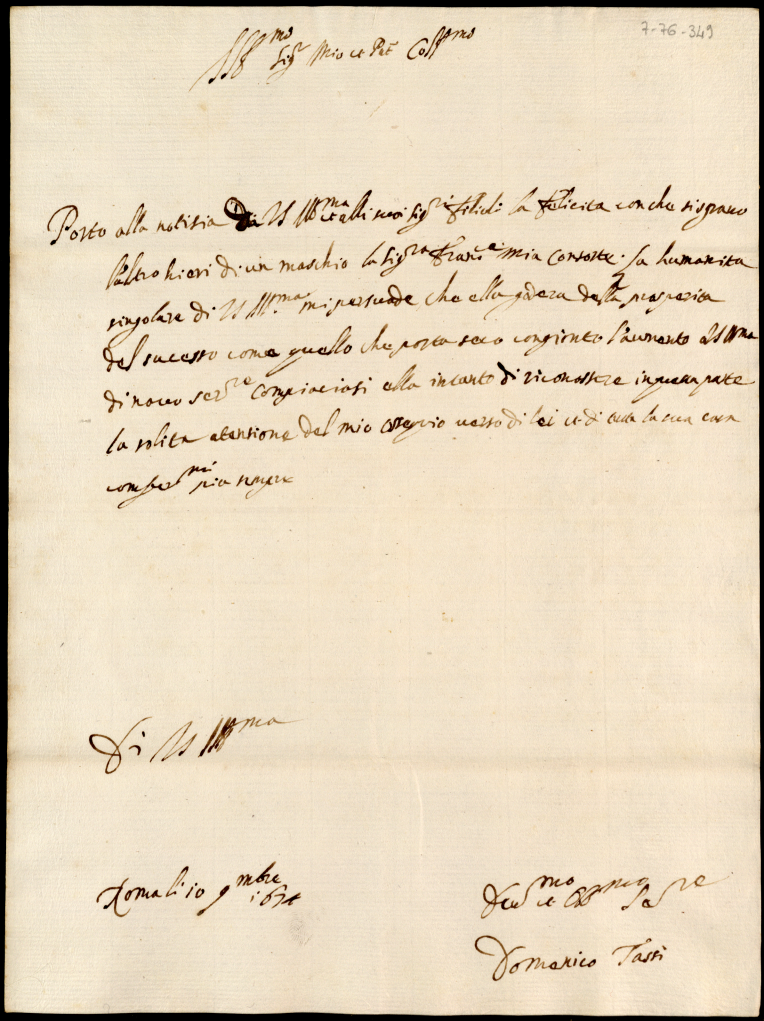 7-76-349
Ill.mo Sig.r Mio et Pne Coll.mo
Porto alla notitia di VS Ill.ma et alli suoi Sig.ri filioli la felicita con che si sgravo
l'altro hieri di un maschio la Sig.ra Franc.a mia Consorte. La humanita
singolare di VS Ill.ma mi persuade che ella godera della prosperita
del successo come quello che porta seco congionto l'aumento a VS Ill.ma
di novo ser.re Compiaciasi ella intanto di riconoscere in questa parte
la solita atensione del mio ossequio verso di lei et di tutta la sua casa
mi pia sempre
Di VS Ill.ma
Roma li 10 9mbre
167
Dev.mo et Obb.mo Se.re
Domenico Tassi